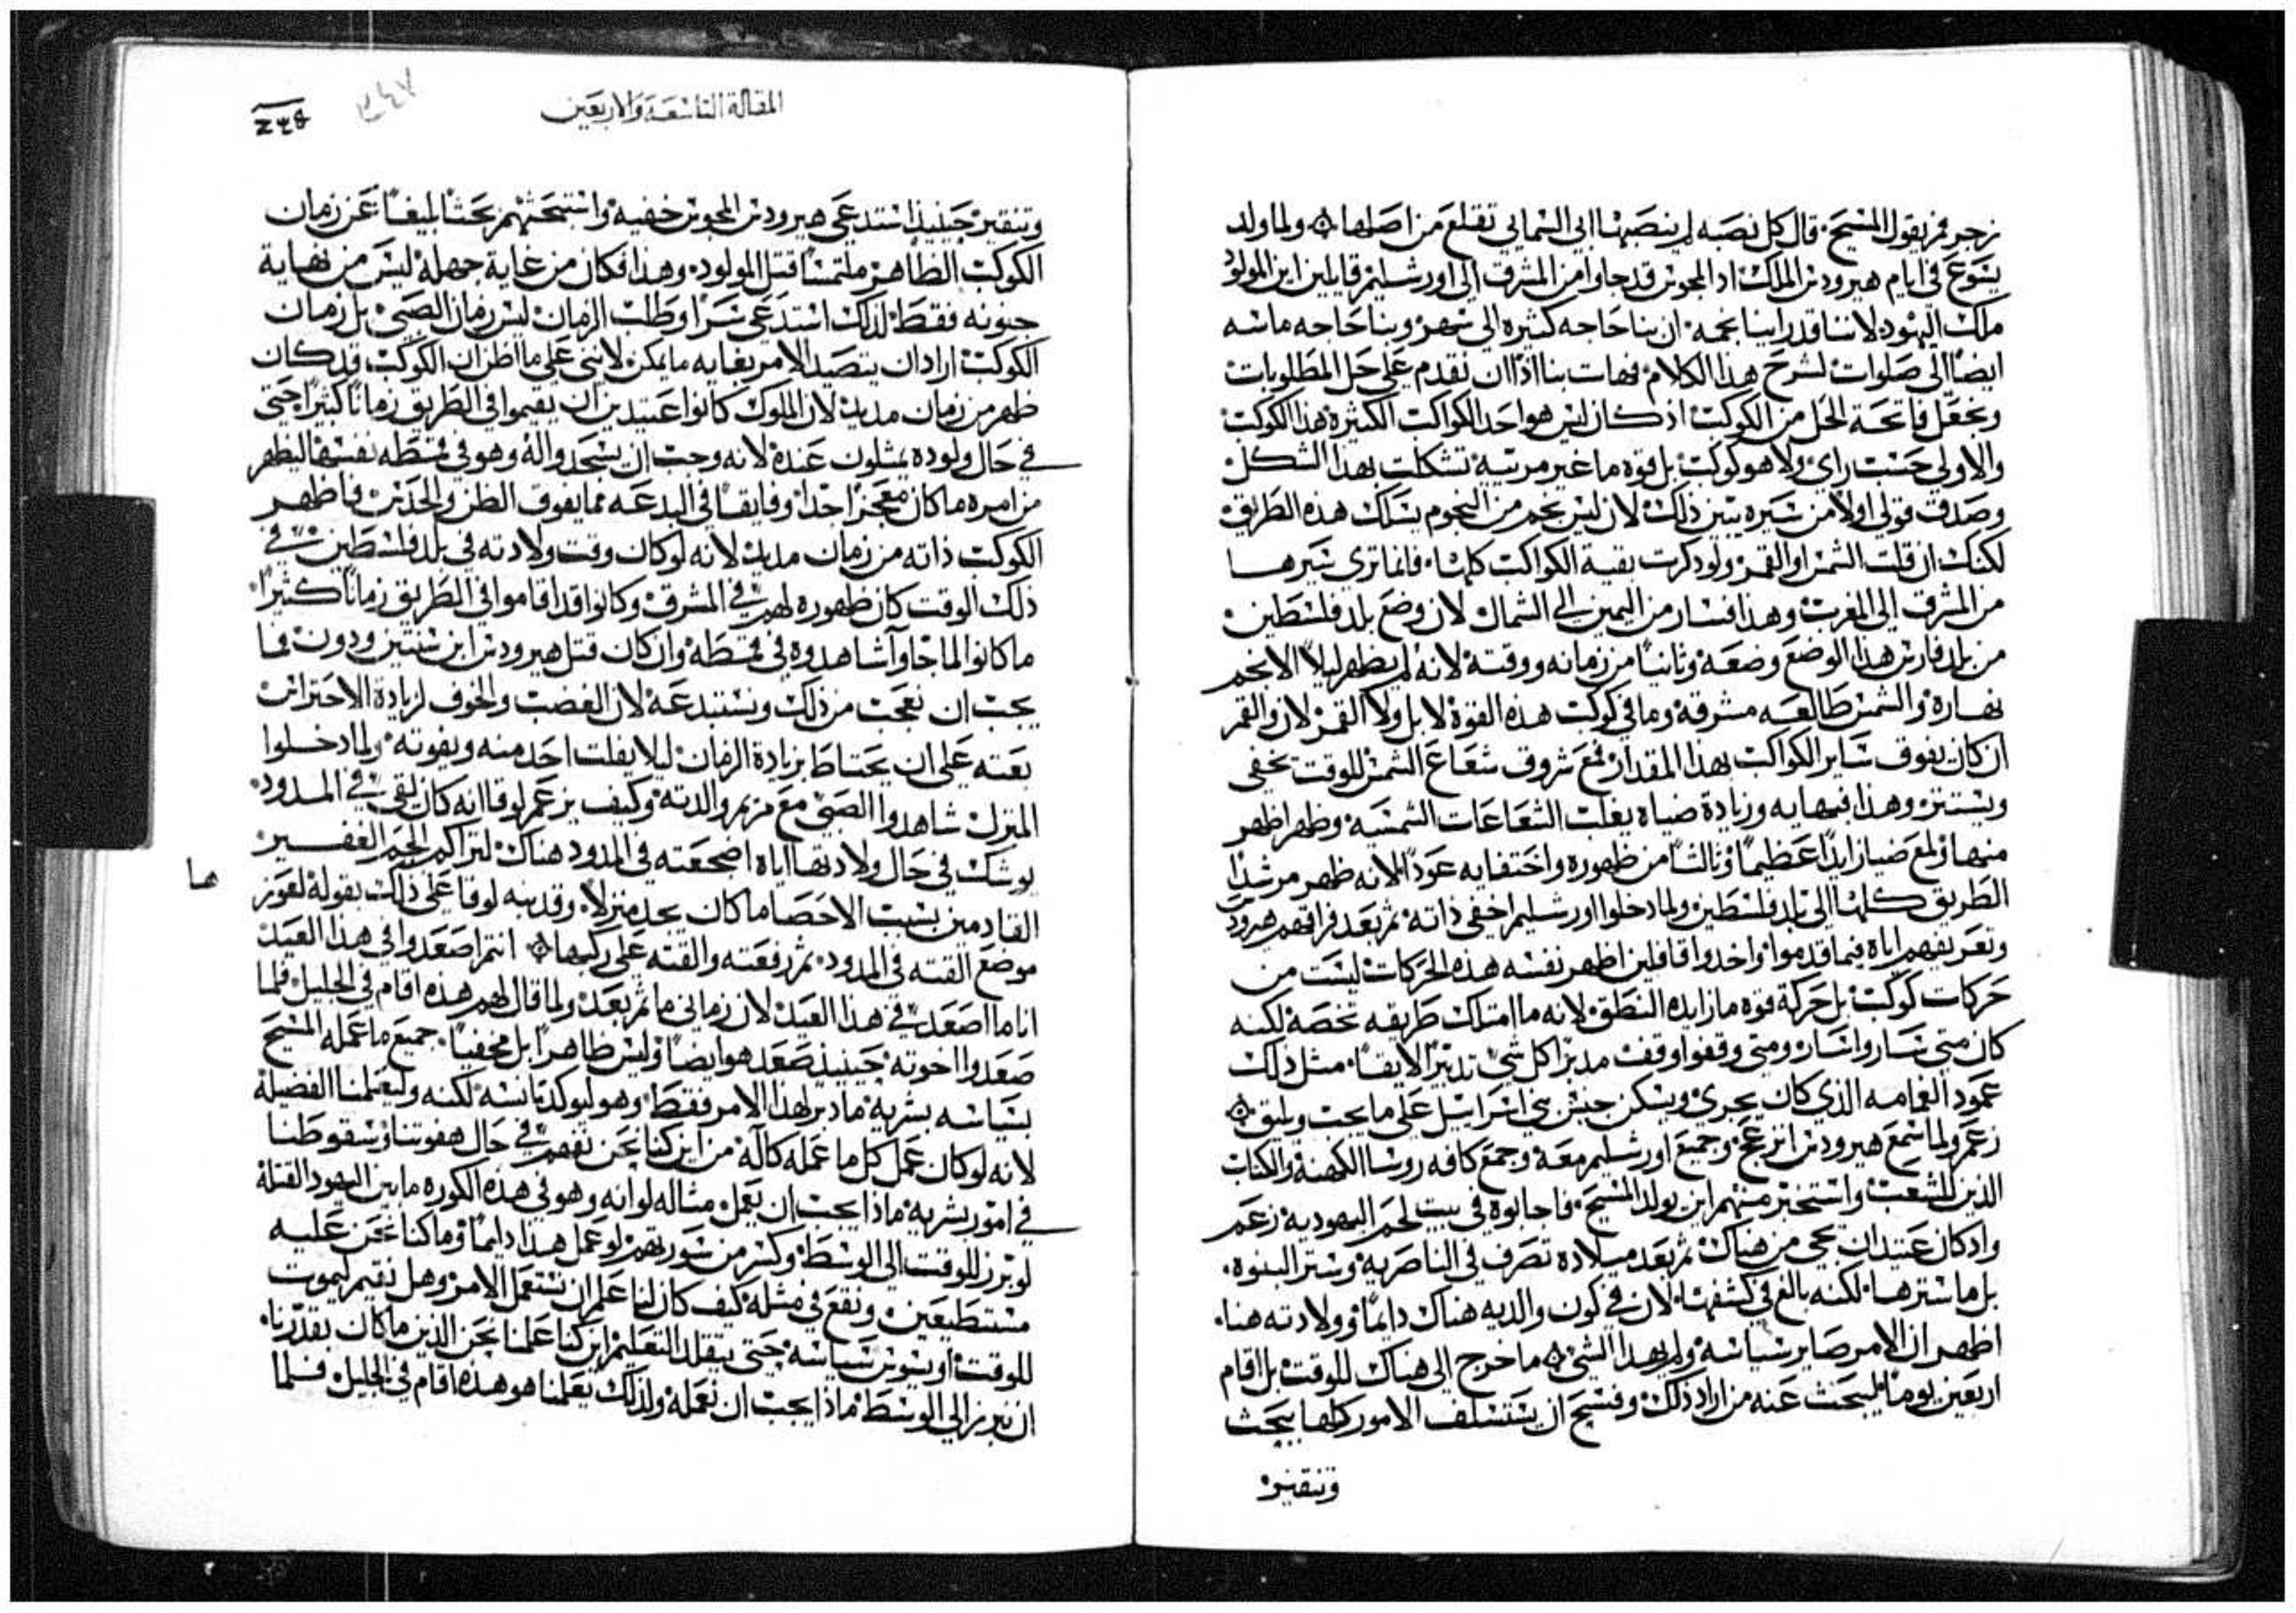 زجر فريقول المسيح قال كل نصبه لم ينصبها ابي السمايي تقلع من اصلها ۞ ولما ولد
يسوع في ايام هيرودس الملك اذ المجوس قد جاوا من المشرق الي اورشليم قايلين اين المولود
ملك اليهود لاننا قد راينا نجمه ان بنا حاجه كثيره الي سهر وبنا حاجه ماسه
ايضا الي صلوات لشرح هذا الكلام فهات بنا اذا ان نقدم علي حل المطلوبات
ونجعل فاتحة الحل من الكوكب اذ كان ليس هو احد الكواكب الكثيرة هذا الكوكب
والاولي حسب راي ولا هو كوكب بل قوه ما غير مرييه تشكلت بهذا الشكل
وصدق قولي اولا من سيره يتبين ذلك لان ليس نجم من النجوم يسلك هذه الطريق
لكنك ان قلت الشمس او القمر ولو ذكرت بقية الكواكب كلها فانما تري سيرها
من المشرق الي المغرب وهذا فسار من اليمين الي الشمال لان وضع بلد فلسطين
من بلد فارس هذا الوضع وضعه وثانيا من زمانه ووقته لانه لم يظهر ليلا لا نجم
نهاره والشمس طالعه مشرقه وما في كوكب هذه القوة لا بل ولا القمر لان والقمر
ان كان يفوق ساير الكواكب بهذا المقدار فمع شروف شعاع الشمس للوقت يختفي
ويستتر وهذا فبهايه وزيادة ضياه يغلب الشعاعات الشمسيه وظهر اظهر
منها ولمع ضيا زايدا عظيما وثالثا من ظهوره واختفايه عودا لانه ظهر مرشدا
الطريق كلها الي بلد فلسطين ولما دخلوا اورشليم اخفي ذاته ثم بعد فراقهم هيرودس
وتعريفهم اياه فيما قدموا واخدوا قافلين اظهر نفسه هذه الحركات ليست من
حركات كوكب بل حركة قوه ما زايده النطق لانه ما امتلك طريقه تخصه لكنه
كان متي ساروا سار ومتي وقفوا وقف مدبرا كل شي تدبيرا لايقا مثل ذلك
عمود الغمامه الذي كان يجري ويسكن جيش بني اسراييل علي ما يجب ويليق ۞
زعم ولما سمع هيرودس انزعج وجميع اورشليم معه وجمع كافه روسا الكهنة والكتاب
الذين للشعب واستخبر منهم اين يولد المسيح فاجابوه في بيت لحم اليهودية زعم
واذ كان عتيدا ان يجي من هناك ثم بعد ميلاده تصرف في الناصرية وستر النبوه
بل ما سترها لكنه بالغ في كشفها لان في كون والديه هناك دايما وولادته هنا
اظهر ان الامر صاير بسياسه ولم بهذا الشي ۞ ما خرج الي هناك للوقت بل اقام
اربعين يوما ليبحث عنه من اراد ذلك وفسح ان يستسلف الامور كلها ببحث
وتنقير
المقالة التاسعة والاربعين
٢٤٧
وتنقير حينيذ استدعي هيرودس المجوس خفيه واستبحثهم بحثا بليغا عن زمان
الكوكب الظاهر ملتمسا قتل المولود وهذا فكان من غاية جهله ليس من نهاية
جنونه فقط لذلك استدعي سرا وطلب الزمان ليس زمان الصبي بل زمان
الكوكب اراد ان يتصيد الامر بغايه ما يمكن لانني علي ما اظن ان الكوكب قد كان
ظهر من زمان مديد لان الملوك كانوا عتيدين ان يقيموا في الطريق زمانا كثيرا حتي
في حال ولوده يمثلون عنده لانه وجب ان يسجدوا له وهو في قمطه نفسها ليظهر
من امره ما كان معجزا جدا وفايقا في البدعه مما يفوق الظن والحدس فاظهر
الكوكب ذاته من زمان مديد لانه لو كان وقت ولادته في بلد فلسطين في
ذلك الوقت كان ظهوره لهم في المشرق وكانوا قد اقاموا في الطريق زمانا كثيرا
ما كانوا لما جاوا شاهدوه في قمطه وان كان قتل هيرودس ابن سنتين ودون فما
يجب ان نعجب من ذلك ونستبدعه لان الغضب والخوف لزيادة الاحتراس
بعته علي ان يحتاط بزيادة الزمان ليلا يفلت احد منه ويفوته ولما دخلوا
المنزل شاهدوا الصبي مع مريم والدته وكيف يزعم لوقا انه كان لقي في المدود
يوشك في حال ولادتها اياه اضجعته في المدود هناك لتراكم الجم الغفير
ها
القادمين بسبب الاحصا ما كان يجد منزلا وقد نبه لوقا علي ذلك بقوله لعوز
موضع القته في المدود ثم رفعته والقته علي ركبها ۞ انتم اصعدوا في هذا العيد
انا ما اصعد في هذا العيد لان زماني ما ثم بعد ولما قال لهم هذه اقام في الجليل فلما
صعدوا اخوته حينيذ صعد هو ايضا وليس ظاهرا بل مخفيا جميع ما عمله المسيح
بسياسه بشرية ما دبر لهذا الامر فقط وهو ليوكد تانسه لكنه وليعلمنا الفضيلة
لانه لو كان عمل كل ما عمله كآله من اين كنا نحن نفهم في حال هفوتنا وسقوطنا
في امور بشرية ماذا يجب ان يعمل مثاله لو انه وهو في هذه الكوره ما بين اليهود القتلة
لو برز للوقت الي الوسط وكسر من سورتهم لو عمل هذا دايما وما كنا نحن عليه
مستطيعين ونقع في مثله كيف كان لنا علم ان نستعمل الامر وهل نقيم ليموت
للوقت او يسوس سياسه حتي يتقلد التعليم اين كنا علمنا نحن الذين ما كان بقدرتنا
ان نبرز الي الوسط ماذا يجب ان نعمله ولذلك يعلمنا هو هذه اقام في الجليل فلما